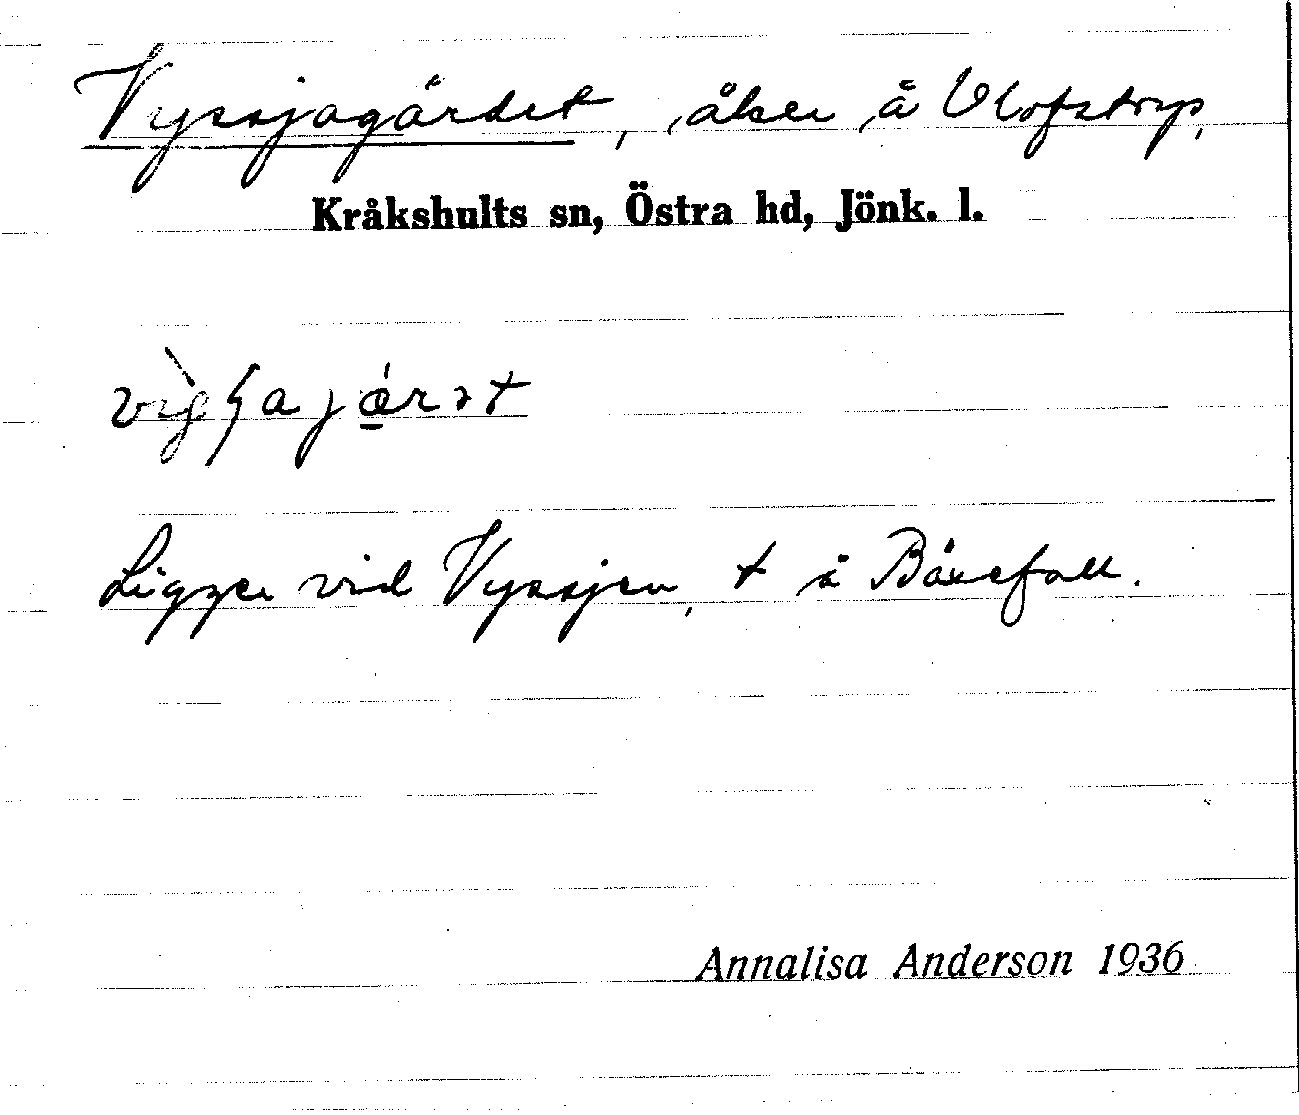 Vyssjagärdet, åker å Ulofstorp,
Kråkshults sn, Östra hd, Jönk. l.
Ligger vid Vyssjön, t å Bäckefall.
Annalisa Anderson 1936